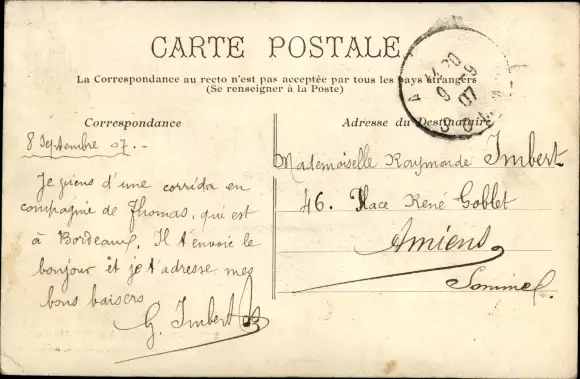 CARTE POSTALE
La Correspondance au recto n'est pas acceptée par tous les pays étrangers
(Se renseigner à la Poste)
Correspondance
8 Septembre 07.-
Je viens d'une corrida en
compagnie de Thomas, qui est
à Bordeaux. Il t'envoie le
bonjour et je t'adresse mes
bons baisers
G. Imbert
Adresse du Destinataire
Mademoiselle Raymonde Imbert
46. Place René Goblet
Amiens
Somme.
20
9 -9
07